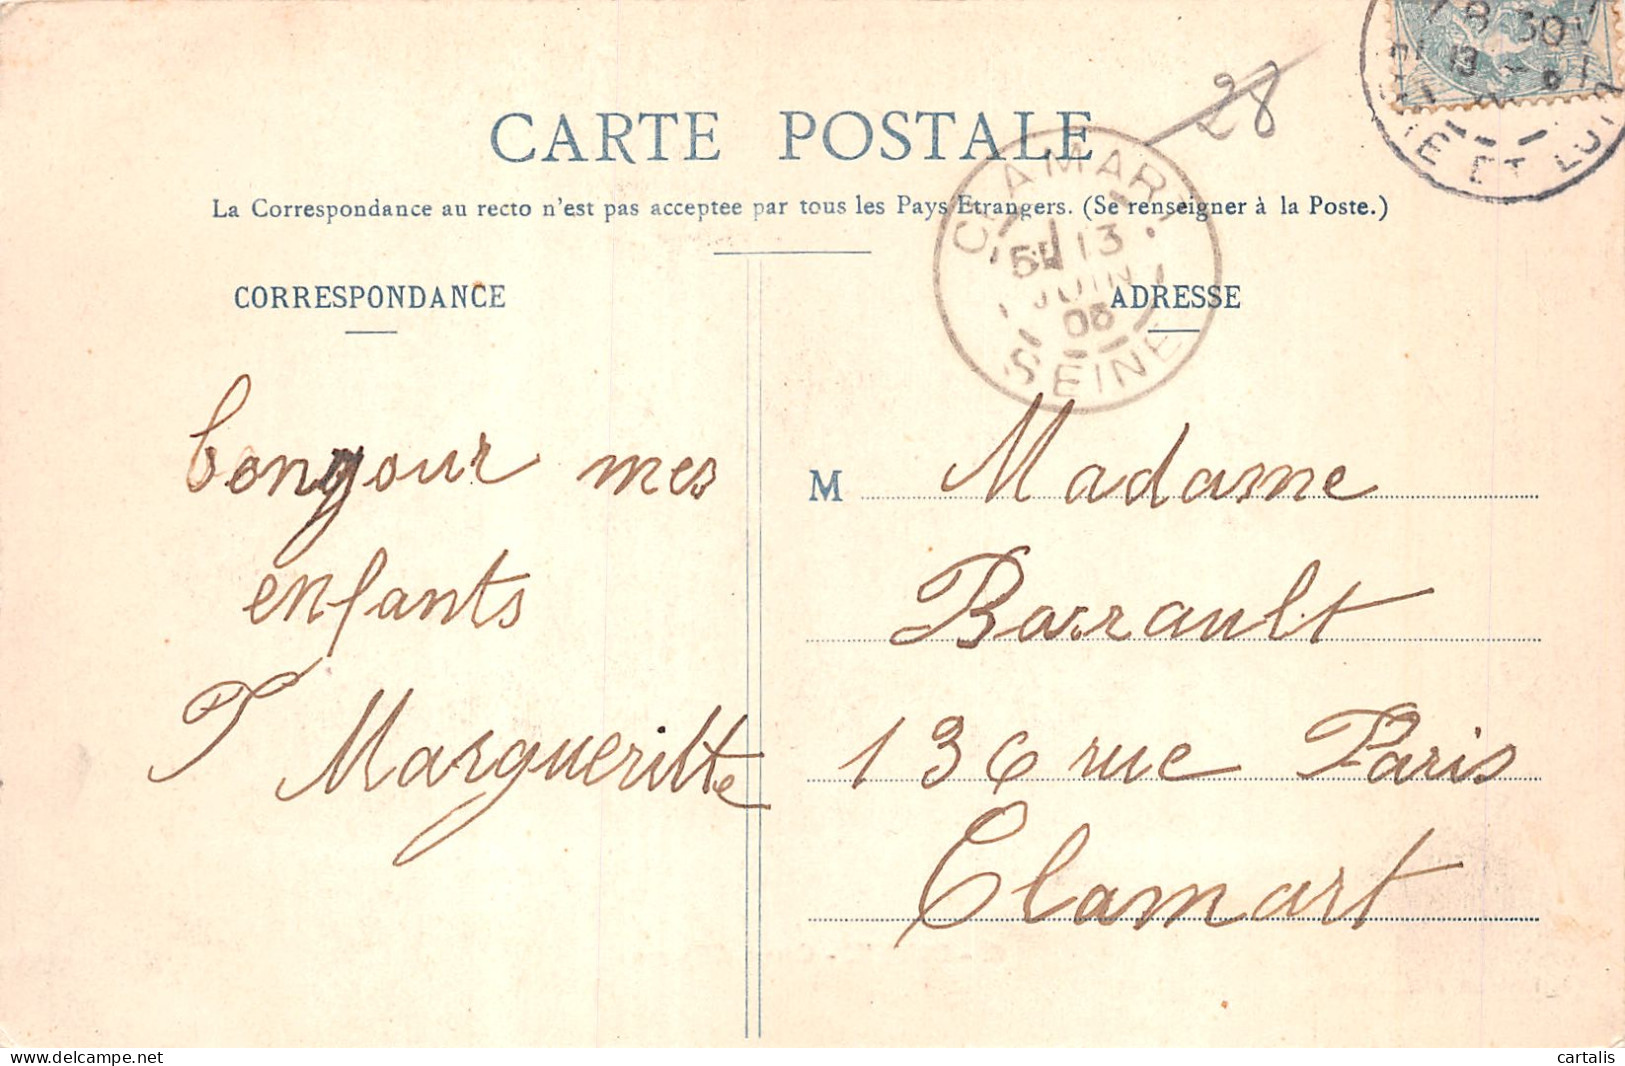 CARTE POSTALE
28
La Correspondance au recto n'est pas acceptee par tous les Pays Etrangers. (Se renseigner à la Poste.)
CLAMART
13
JUIN
SEINE
8 30
13
ET LOIR
CORRESPONDANCE
bonjour mes
enfants
T Margueritte
ADRESSE
M Madame
Barrault
136 rue Paris
Clamart
delcampe.net
cartalis